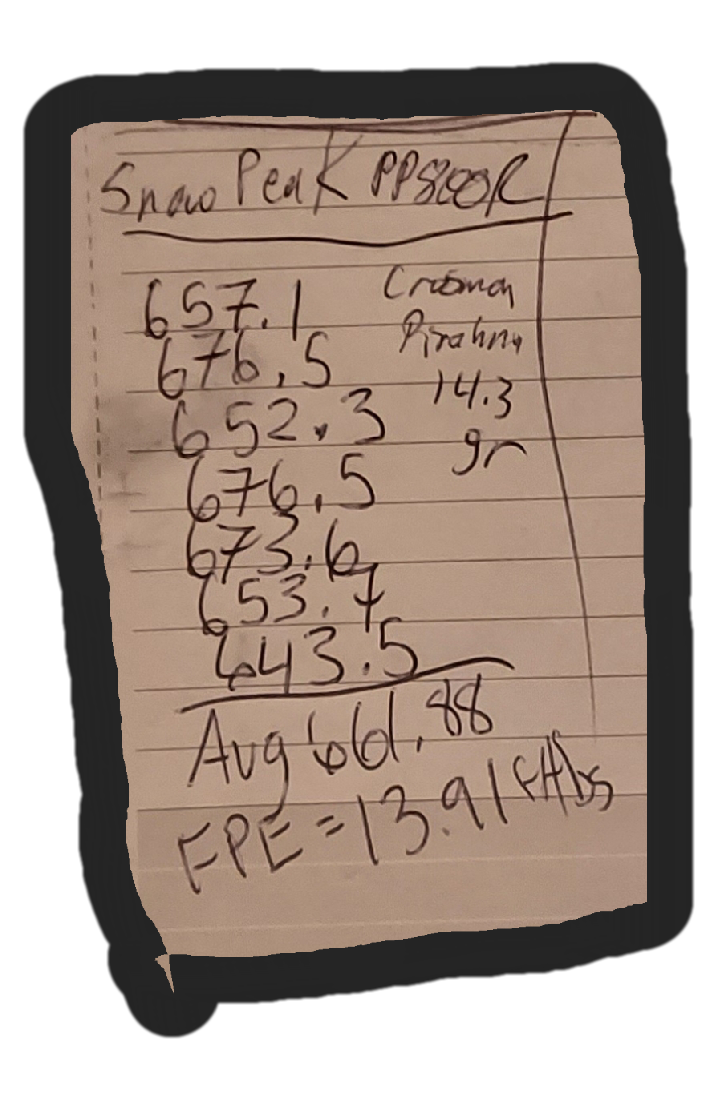 Snow Peak PP800R
657.1
676.5
652.3
676.5
673.6
653.7
643.5
Crosman
Pirahna
14.3
gr
Avg 661.88
FPE = 13.91 ft lbs